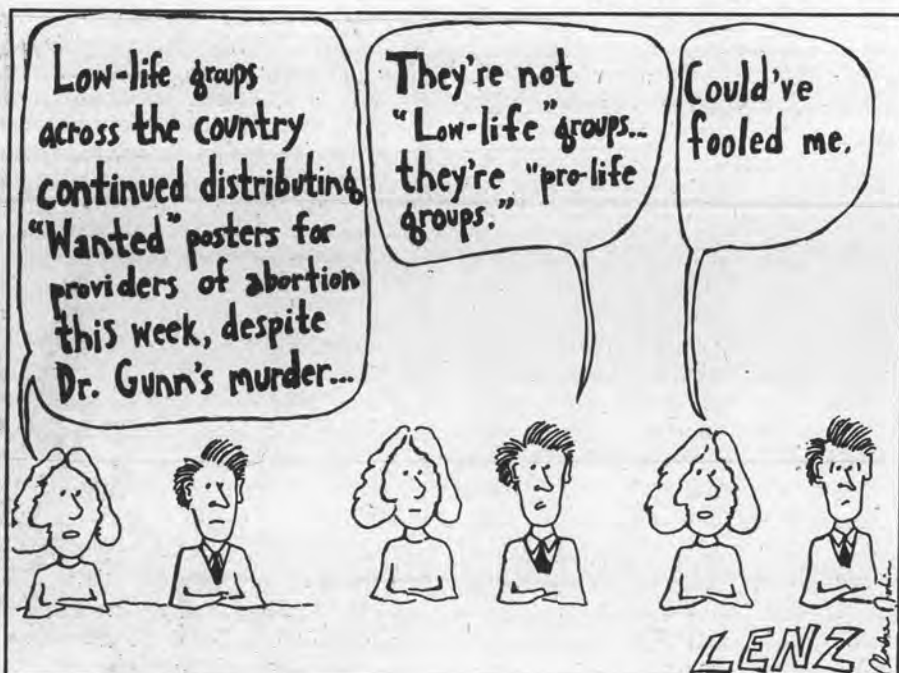 Low-life groups
across the country
continued distributing
"Wanted" posters for
providers of abortion
this week, despite
Dr. Gunn's murder...
They're not
"Low-life" groups...
they're "pro-life
groups."
Could've
fooled me.
LENZ